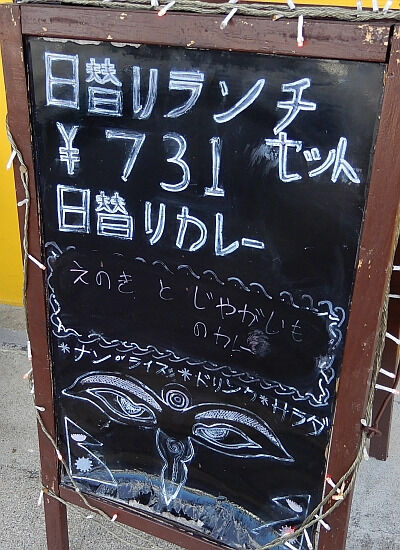 日替りランチ
¥731 セット
日替りカレー
えのき と じゃがいも
のカレー
*ナンorライス *ドリンク *サラダ